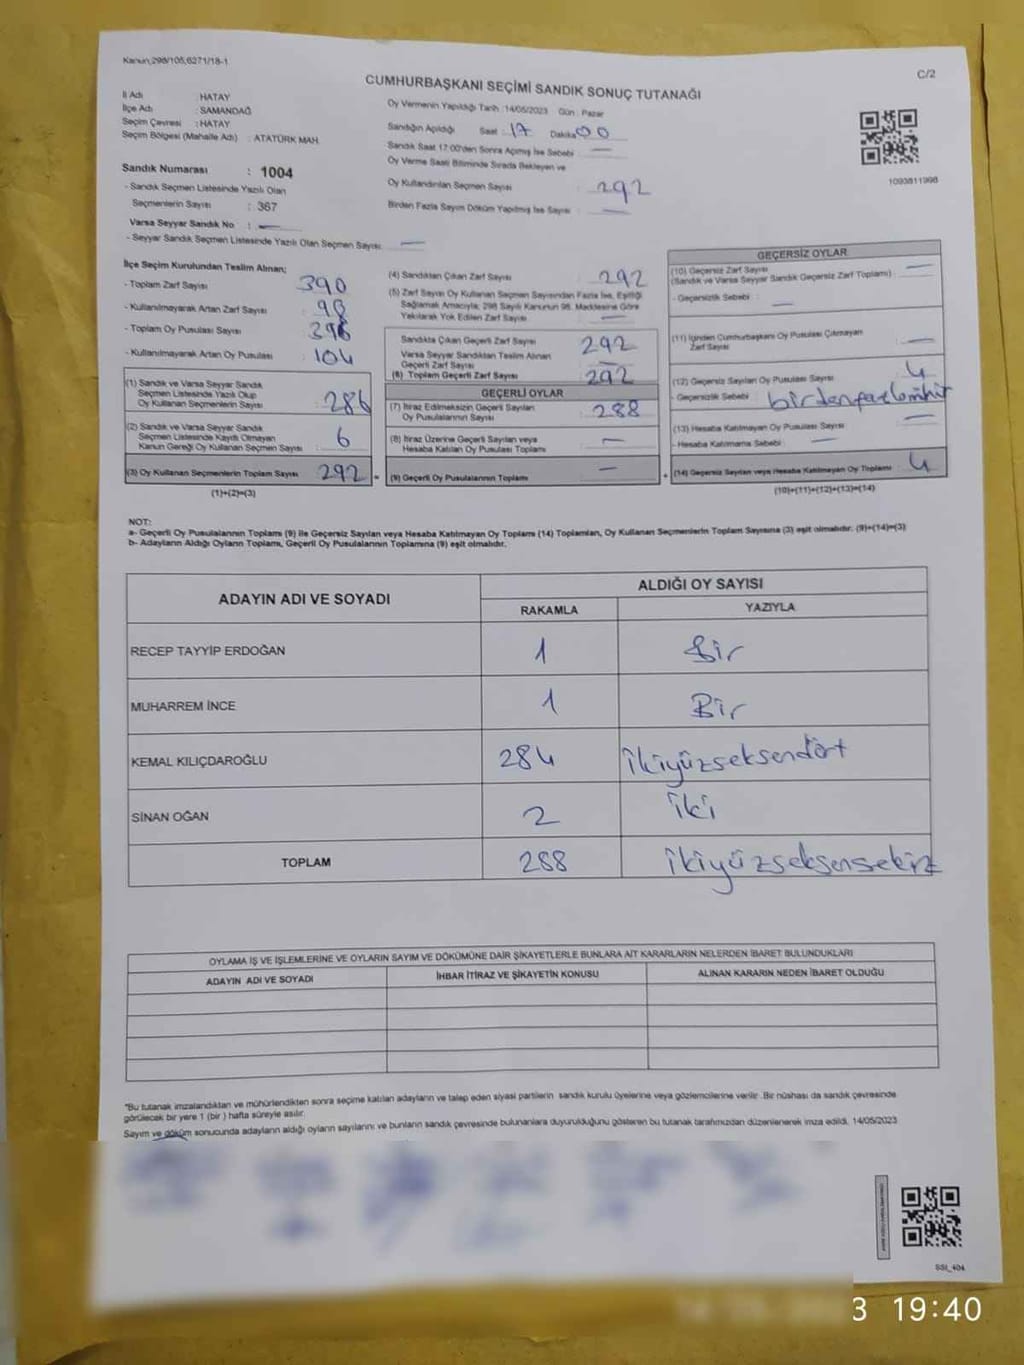 Kanun,298/105,6271/18-1
C/2
CUMHURBAŞKANI SEÇİMİ SANDIK SONUÇ TUTANAĞI
İl Adı : HATAY
İlçe Adı : SAMANDAĞ
Seçim Çevresi : HATAY
Seçim Bölgesi (Mahalle Adı) : ATATÜRK MAH.
Sandık Numarası : 1004
- Sandık Seçmen Listesinde Yazılı Olan
Seçmenlerin Sayısı : 367
Varsa Seyyar Sandık No : —
- Seyyar Sandık Seçmen Listesinde Yazılı Olan Seçmen Sayısı —
Oy Vermenin Yapıldığı Tarih :14/05/2023 Gün : Pazar
Sandığın Açıldığı Saat : 17 Dakika 00
Sandık Saat 17:00'den Sonra Açılmış İse Sebebi —
Oy Verme Saati Bitiminde Sırada Bekleyen ve
Oy Kullandırılan Seçmen Sayısı : 292
Birden Fazla Sayım Döküm Yapılmış İse Sayısı —
1093811998
İlçe Seçim Kurulundan Teslim Alınan;
- Toplam Zarf Sayısı 390
- Kullanılmayarak Artan Zarf Sayısı 98
- Toplam Oy Pusulası Sayısı 396
- Kullanılmayarak Artan Oy Pusulası 104
(1) Sandık ve Varsa Seyyar Sandık
Seçmen Listesinde Yazılı Olup
Oy Kullanan Seçmenlerin Sayısı : 286
(2) Sandık ve Varsa Seyyar Sandık
Seçmen Listesinde Kayıtlı Olmayan
Kanun Gereği Oy Kullanan Seçmen Sayısı 6
(3) Oy Kullanan Seçmenlerin Toplam Sayısı 292 =
(1)+(2)=(3)
(4) Sandıktan Çıkan Zarf Sayısı 292
(5) Zarf Sayısı Oy Kullanan Seçmen Sayısından Fazla İse, Eşitliği
Sağlamak Amacıyla; 298 Sayılı Kanunun 98. Maddesine Göre
Yakılarak Yok Edilen Zarf Sayısı —
Sandıkta Çıkan Geçerli Zarf Sayısı 292
Varsa Seyyar Sandıktan Teslim Alınan
Geçerli Zarf Sayısı —
(6) Toplam Geçerli Zarf Sayısı 292
GEÇERLİ OYLAR
(7) İtiraz Edilmeksizin Geçerli Sayılan
Oy Pusulalarının Sayısı : 288
(8) İtiraz Üzerine Geçerli Sayılan veya
Hesaba Katılan Oy Pusulası Toplamı —
(9) Geçerli Oy Pusulalarının Toplamı — +
GEÇERSİZ OYLAR
(10) Geçersiz Zarf Sayısı —
(Sandık ve Varsa Seyyar Sandık Geçersiz Zarf Toplamı)
- Geçersizlik Sebebi : —
(11) İçinden Cumhurbaşkanı Oy Pusulası Çıkmayan
Zarf Sayısı —
(12) Geçersiz Sayılan Oy Pusulası Sayısı 4
- Geçersizlik Sebebi
(13) Hesaba Katılmayan Oy Pusulası Sayısı —
- Hesaba Katılmama Sebebi : —
(14) Geçersiz Sayılan veya Hesaba Katılmayan Oy Toplamı 4
(10)+(11)+(12)+(13)=(14)
NOT:
a- Geçerli Oy Pusulalarının Toplamı (9) ile Geçersiz Sayılan veya Hesaba Katılmayan Oy Toplamı (14) Toplamları, Oy Kullanan Seçmenlerin Toplam Sayısına (3) eşit olmalıdır. (9)+(14)=(3)
b- Adayların Aldığı Oyların Toplamı, Geçerli Oy Pusulalarının Toplamına (9) eşit olmalıdır.
ADAYIN ADI VE SOYADI
ALDIĞI OY SAYISI
RAKAMLA YAZIYLA
RECEP TAYYİP ERDOĞAN 1 Bir
MUHARREM İNCE 1 Bir
KEMAL KILIÇDAROĞLU 284 İkiyüzseksendört
SİNAN OĞAN 2 İki
TOPLAM 288 İkiyüzseksensekiz
OYLAMA İŞ VE İŞLEMLERİNE VE OYLARIN SAYIM VE DÖKÜMÜNE DAİR ŞİKAYETLERLE BUNLARA AİT KARARLARIN NELERDEN İBARET BULUNDUKLARI
ADAYIN ADI VE SOYADI İHBAR İTİRAZ VE ŞİKAYETİN KONUSU ALINAN KARARIN NEDEN İBARET OLDUĞU
"Bu tutanak imzalandıktan ve mühürlendikten sonra seçime katılan adayların ve talep eden siyasi partilerin sandık kurulu üyelerine veya gözlemcilerine verilir. Bir nüshası da sandık çevresinde
görülecek bir yere 1 (bir ) hafta süreyle asılır.
Sayım ve döküm sonucunda adayların aldığı oyların sayılarını ve bunların sandık çevresinde bulunanlara duyurulduğunu gösteren bu tutanak tarafımızdan düzenlenerek imza edildi. 14/05/2023
SSI_404
3 19:40